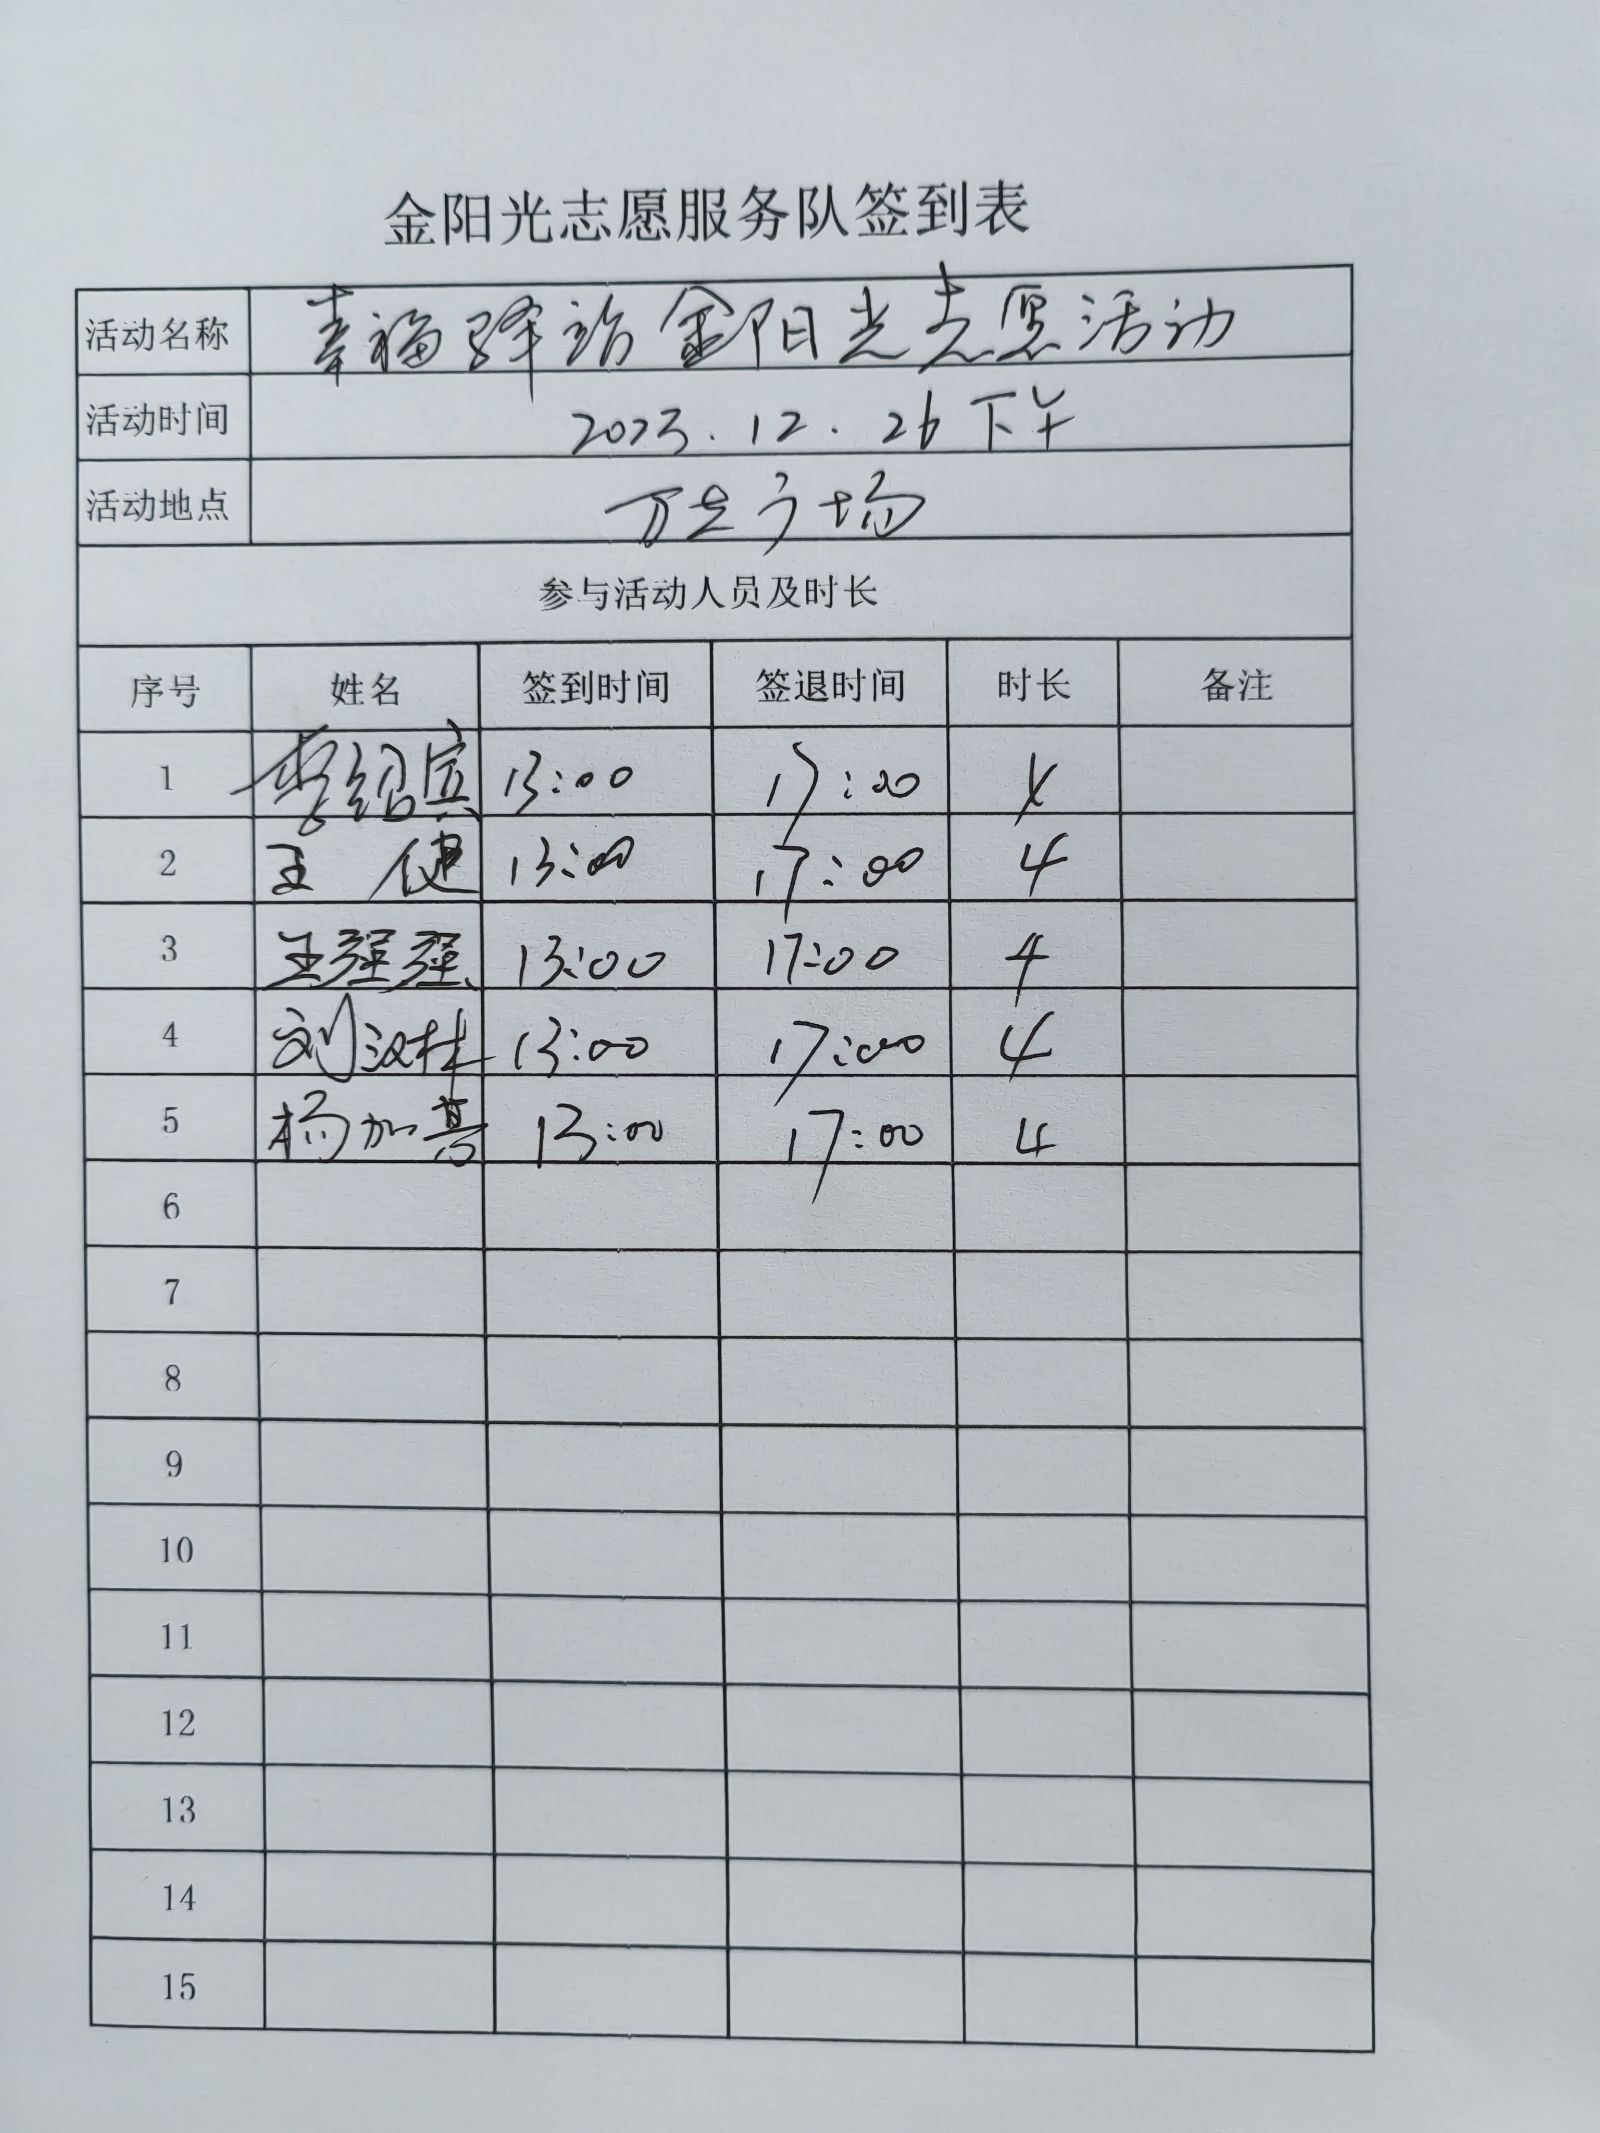 金阳光志愿服务队签到表
活动名称 幸福驿站金阳光志愿活动
活动时间 2023.12.26下午
活动地点 万达广场
参与活动人员及时长
序号 姓名 签到时间 签退时间 时长 备注
1 李绍宾 13:00 17:00 4
2 王健 13:00 17:00 4
3 王强强 13:00 17:00 4
4 刘汉杜 13:00 17:00 4
5 杨加喜 13:00 17:00 4
6
7
8
9
10
11
12
13
14
15